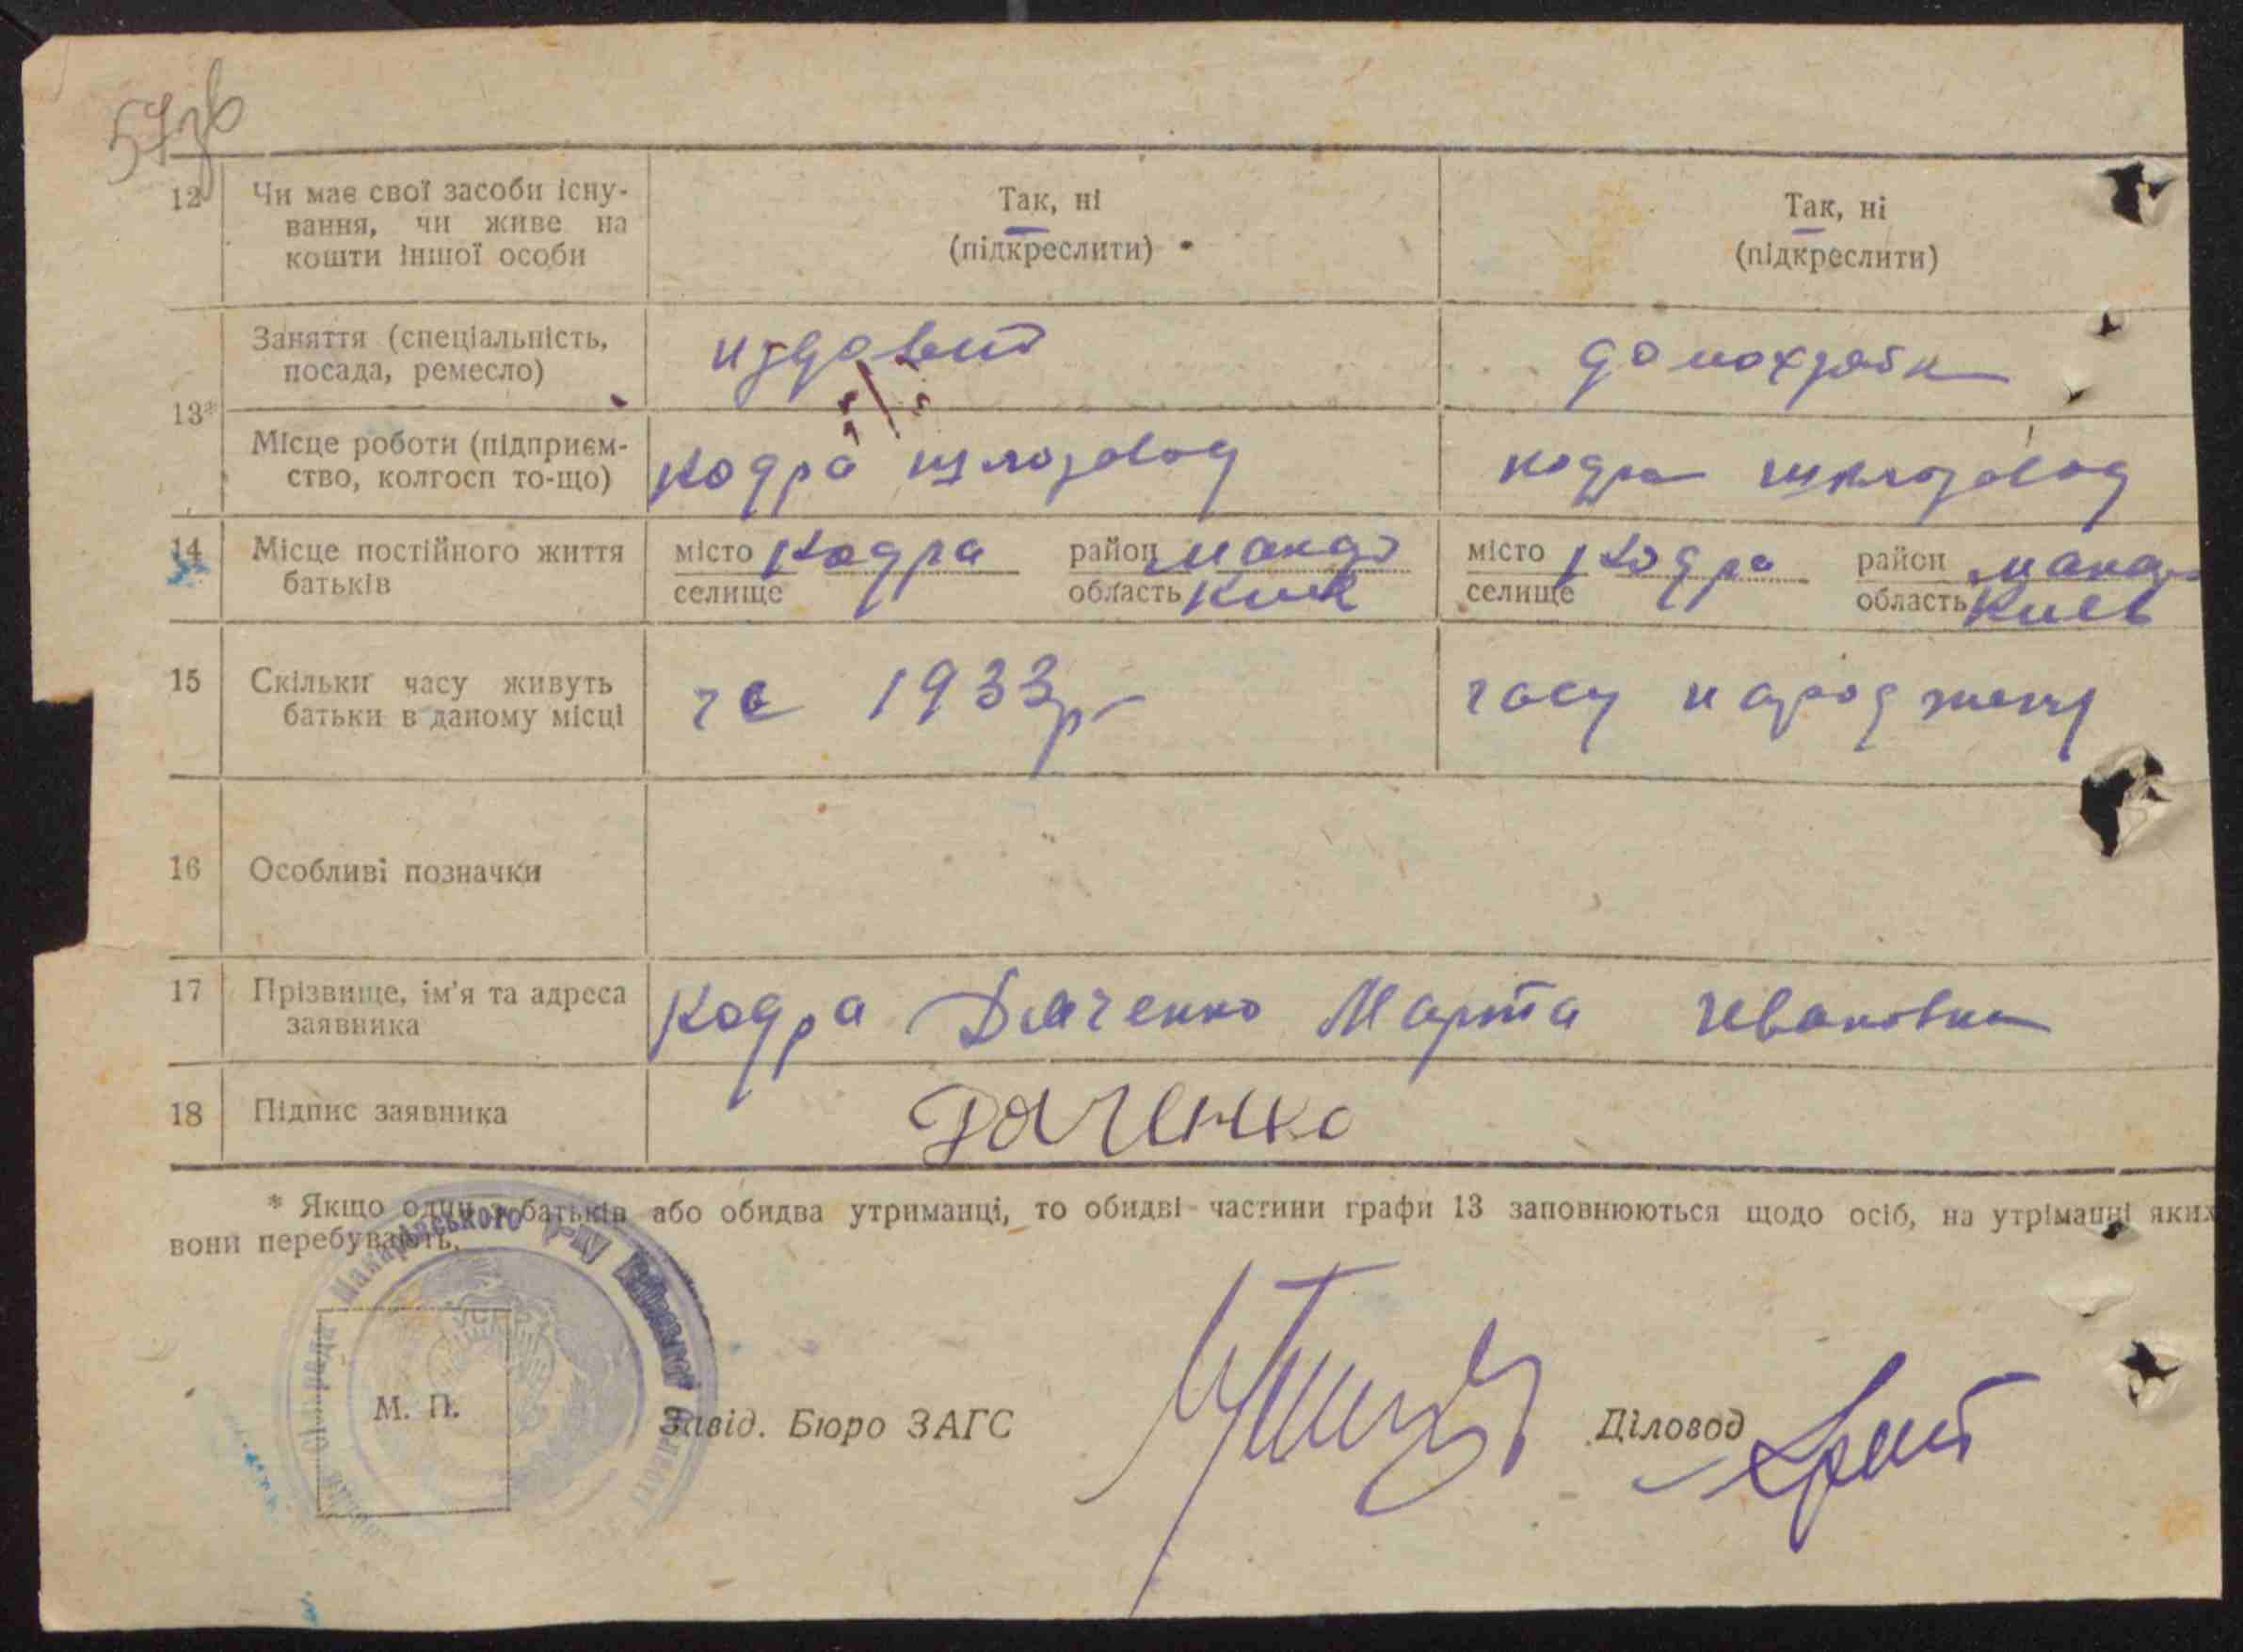 57зв
12 Чи має свої засоби існу- Так, ні Так, ні
вання, чи живе на (підкреслити) (підкреслити)
кошти іншої особи
Заняття (спеціальність, издовий домохзяйк
посада, ремесло)
13*
Місце роботи (підприєм- Кодра шлозавод кодра шклозавод
ство, колгосп то-що)
14 Місце постійного життя місто Кодра район макар місто Кодра район макар
батьків селище область Киев селище область Киев
15 Скільки часу живуть че 1933р часу народжену
батьки в даному місці
16 Особливі позначки
17 Прізвище, ім'я та адреса Кодра Дяченко Марта Ивановна
заявника
18 Підпис заявника Даченко
* Якщо один з батьків або обидва утриманці, то обидві частини графи 13 заповнюються щодо осіб, на утріманці яких
вони перебувають.
Макарівського
УСРР
М. П.
Завід. Бюро ЗАГС Діловод